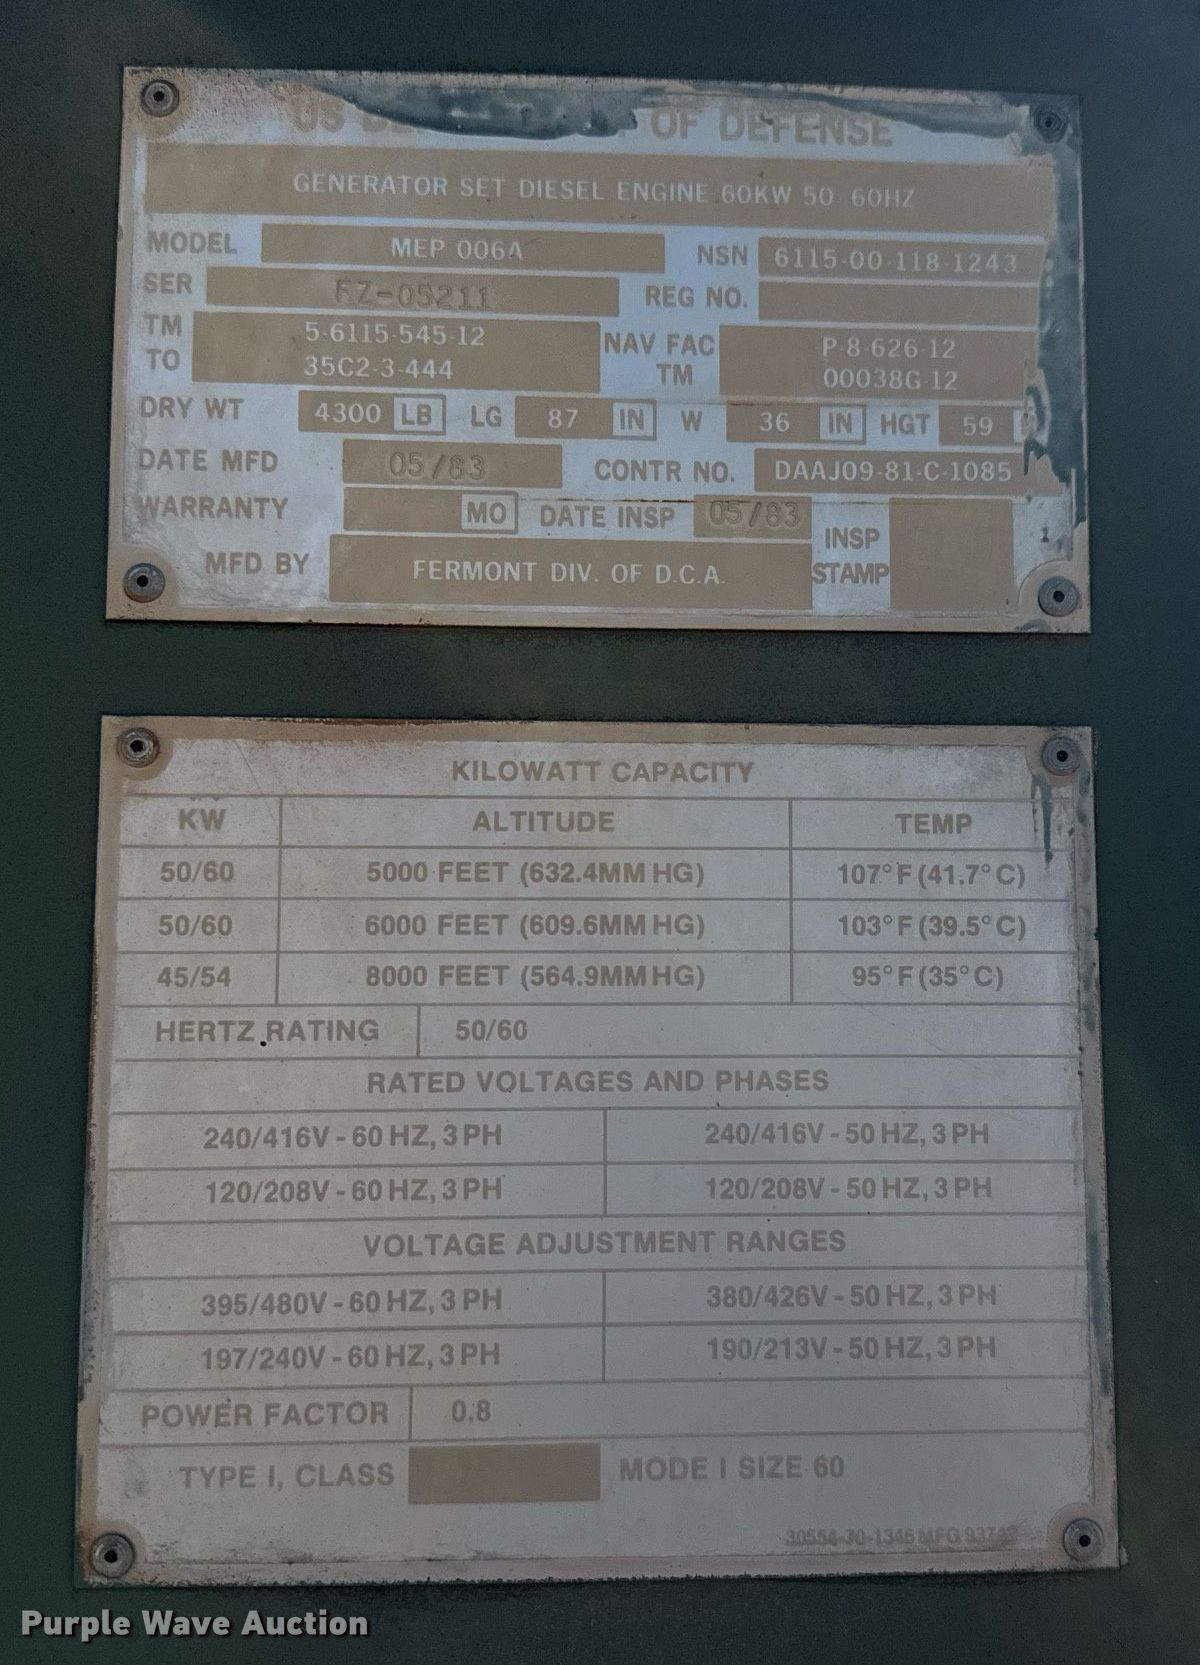 US OF DEFENSE
GENERATOR SET DIESEL ENGINE 60KW 50 60HZ
MODEL MEP 006A NSN 6115-00-118-1243
SER FZ-05211 REG NO.
TM 5-6115-545-12 NAV FAC P-8-626-12
TO 35C2-3-444 TM 00038G-12
DRY WT 4300 LB LG 87 IN W 36 IN HGT 59
DATE MFD 05/83 CONTR NO. DAAJ09-81-C-1085
WARRANTY MO DATE INSP 05/83 INSP STAMP
MFD BY FERMONT DIV. OF D.C.A.
KILOWATT CAPACITY
KW ALTITUDE TEMP
50/60 5000 FEET (632.4MM HG) 107°F (41.7°C)
50/60 6000 FEET (609.6MM HG) 103°F (39.5°C)
45/54 8000 FEET (564.9MM HG) 95°F (35°C)
HERTZ RATING 50/60
RATED VOLTAGES AND PHASES
240/416V - 60 HZ, 3 PH 240/416V - 50 HZ, 3 PH
120/208V - 60 HZ, 3 PH 120/208V - 50 HZ, 3 PH
VOLTAGE ADJUSTMENT RANGES
395/480V - 60 HZ, 3 PH 380/426V - 50 HZ, 3 PH
197/240V - 60 HZ, 3 PH 190/213V - 50 HZ, 3 PH
POWER FACTOR 0.8
TYPE I, CLASS MODE I SIZE 60
MFG
Purple Wave Auction